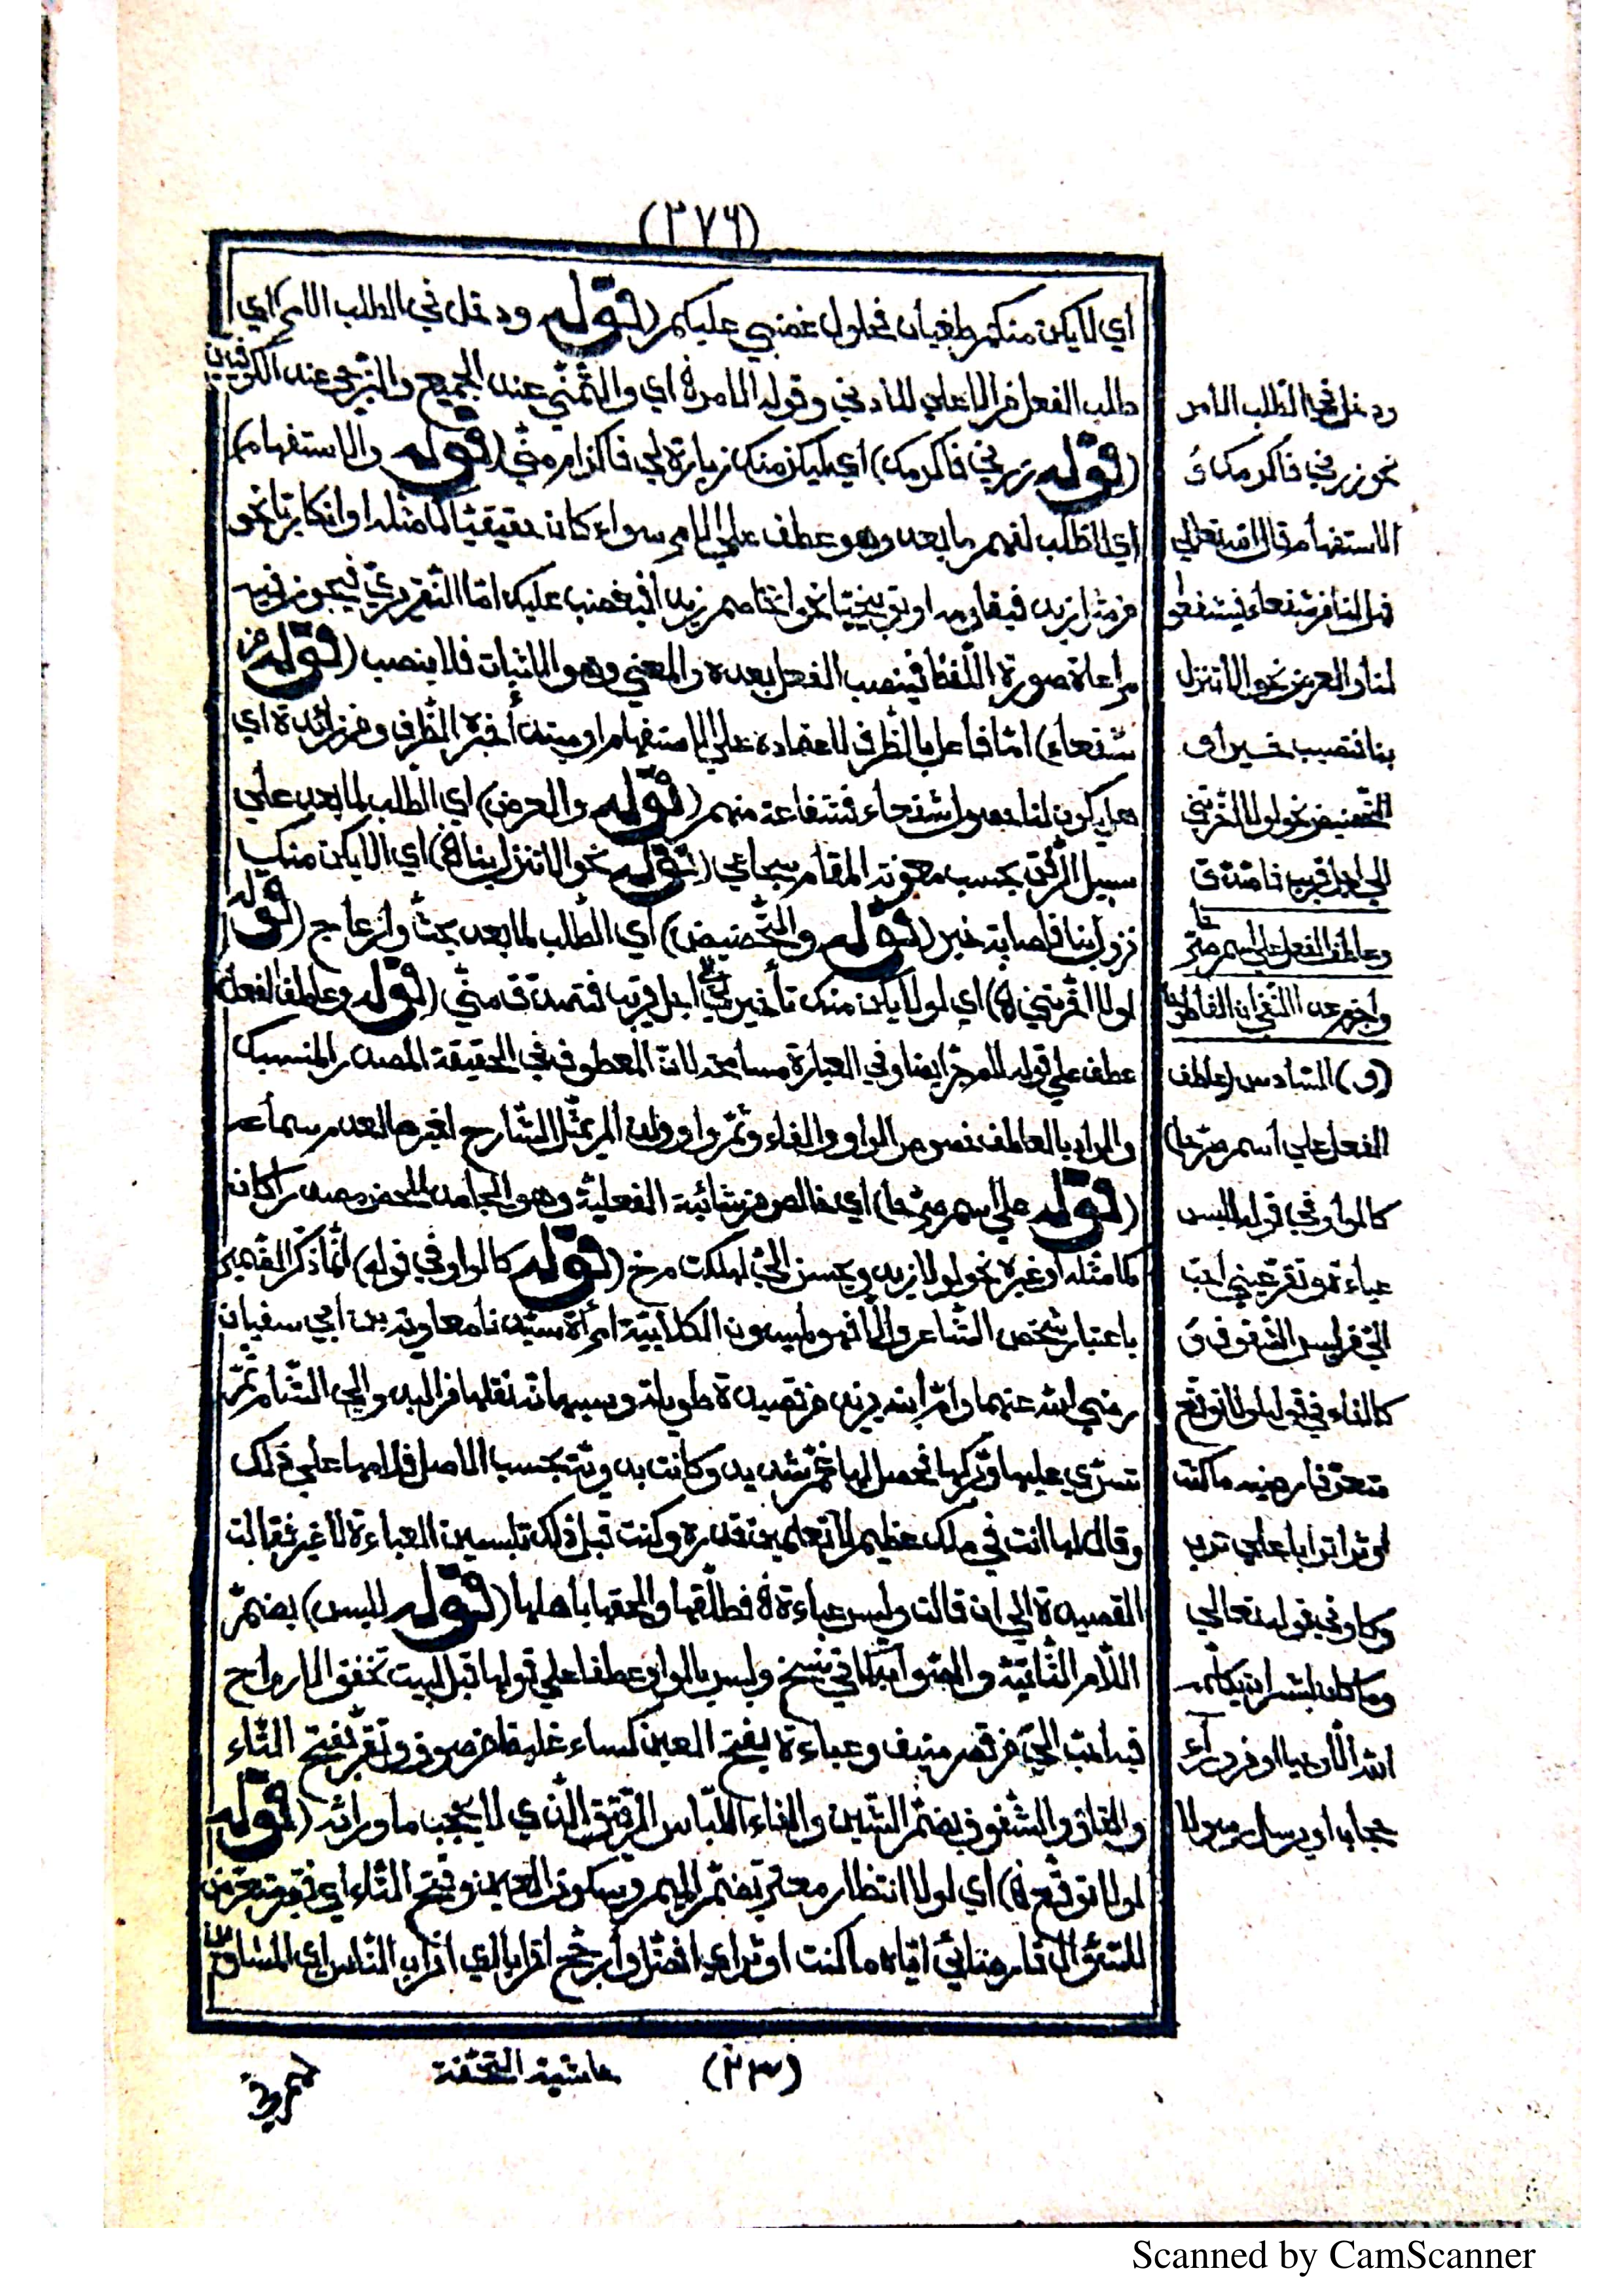 (٣٧٦)
اي لا يكن منكم طغيان فحلول غضبي عليكم (قوله ودخل في الطلب الامر) اي
طلب الفعل من الاعلي للادني وقوله الامر ه اي والتمني عند الجميع والترجي عند الكوفيين
(قوله زرني فاكرمك) اي ليكن منك زيارة لي فاكرام مني (قوله والاستفهام)
اي الطلب لفهم ما بعده وهو عطف علي الامر سواء كان حقيقيا كما مثله او انكاريا نحو
من ازيد فيقاومه او توبيخيا نحو اتخاصم زيدا فيغضب عليك امّا التقريري فيجوز فيه
مراعاة صورة اللّفظ فينصب الفعل بعده والمعني وهو الاثبات فلا ينصب (قوله من
شفعاء) امّا فاعل بالظرف لاعتماده علي الاستفهام او مبتدأ خبره الظرف ومن زائدة اي
هل يكون لنا حصول شفعاء فشفاعة منهم (قوله والعرض) اي الطلب لما بعد علي
سبيل الرّفق بحسب معونة المقام سجاعي (قوله نحو الا تنزل بنا ه) اي الا يكن منك
نزول بنا فاصابة خير (قوله والتّحضيض) اي الطّلب لما بعد بحثّ وازعاج (قوله
لولا اخّرتني ه) اي لولا يكن منك تأخير لي الي اجل قريب فتصدق منّي (قوله وعاطف الفعل)
عطف علي قوله للمجرّ ايضا وفي العبارة مسامحة لانّ المعطوف في الحقيقة المصدر المنسبك
والمراد بالعاطف خصوص الواو والفاء وثمّ واو ولم يمثّل الشّارح لغيرها لعدم سماعه
(قوله علي اسم صريحا) اي خالص من شائبة الفعلية وهو الجامد المحض مصدرا كان
كما مثله او غيره نحو لولا زيد ويحسن الي لهلكت مرخ (قوله كالواو في قوله) انّما ذكّر الضمير
باعتبار شخص الشّاعر والّا فهو لميسون الكلابيّة امرأة سيّدنا معاوية بن ابي سفيان
رضي الله عنهما وامّ ابنه يزيد من قصيدة طويلة وسببها انه نقلها من البدو والي الشّام ثمّ
تسرّي عليها وتركها فحصل لها غمّ شديد وكانت بدويّة بحسب الاصل فلامها علي ذلك
وقال لها انت في ملك عظيم لا تعلمين قدره وكنت قبل ذلك تلبسين العباءة لا غير فقالت
القصيدة الي ان قالت ولبس عباءة ه فطلّقها والحقها باهلها (قوله للبس) بضمّ
اللّام الثّانيّة والصّواب كما في نسخ ولبس بالواو عطفا علي قولها قبل لبيت تخفق الارواح
فيه احبّ اليّ من قصر منيف وعباءة بفتح العين كساء غليظ من صوف وتقرّ بفتح التّاء
والقاف والشّفوف بضمّ الشّين والفاء اللّباس الرّقيق الّذي لا يحجب ما ورائه (قوله
لولا توقّع ه) اي لولا انتظار معترّ بضمّ الميم وسكون العين وفتح التّاء اي فقير متعرّض
للسّؤال فارضائي ايّاه ما كنت اوثر اي افضّل وأرجّح اترابا اي اقران النّاس اي المساوين
ودخل في الطّلب الامر
نحو زرني فاكرمك و
الاستفهام قال الله تعالي
فهل لنا من شفعاء فيشفعوا
لنا والعرض نحو الا تنزل
بنا فتصيب خيرا و
التّحضيض نحو لولا اخّرتني
الي اجل قريب فاصّدّق
وعاطف الفعل علي اسم صريحا
(و) السّادس (عاطف
الفعل علي اسم صريحا)
كالواو في قوله للبس
عباءة وتقرّ عيني احبّ
اليّ من لبس الشّفوف و
كالفاء في قوله لولا توقّع
معترّ فارضيه ما كنت
اوثر اترابا علي ترب
وكاو في قوله تعالي
وما كان لبشر ان يكلّمه
الله الّا وحيا او من وراء
حجاب او يرسل رسولا
(٣٣)
حاشية التحفة
Scanned by CamScanner